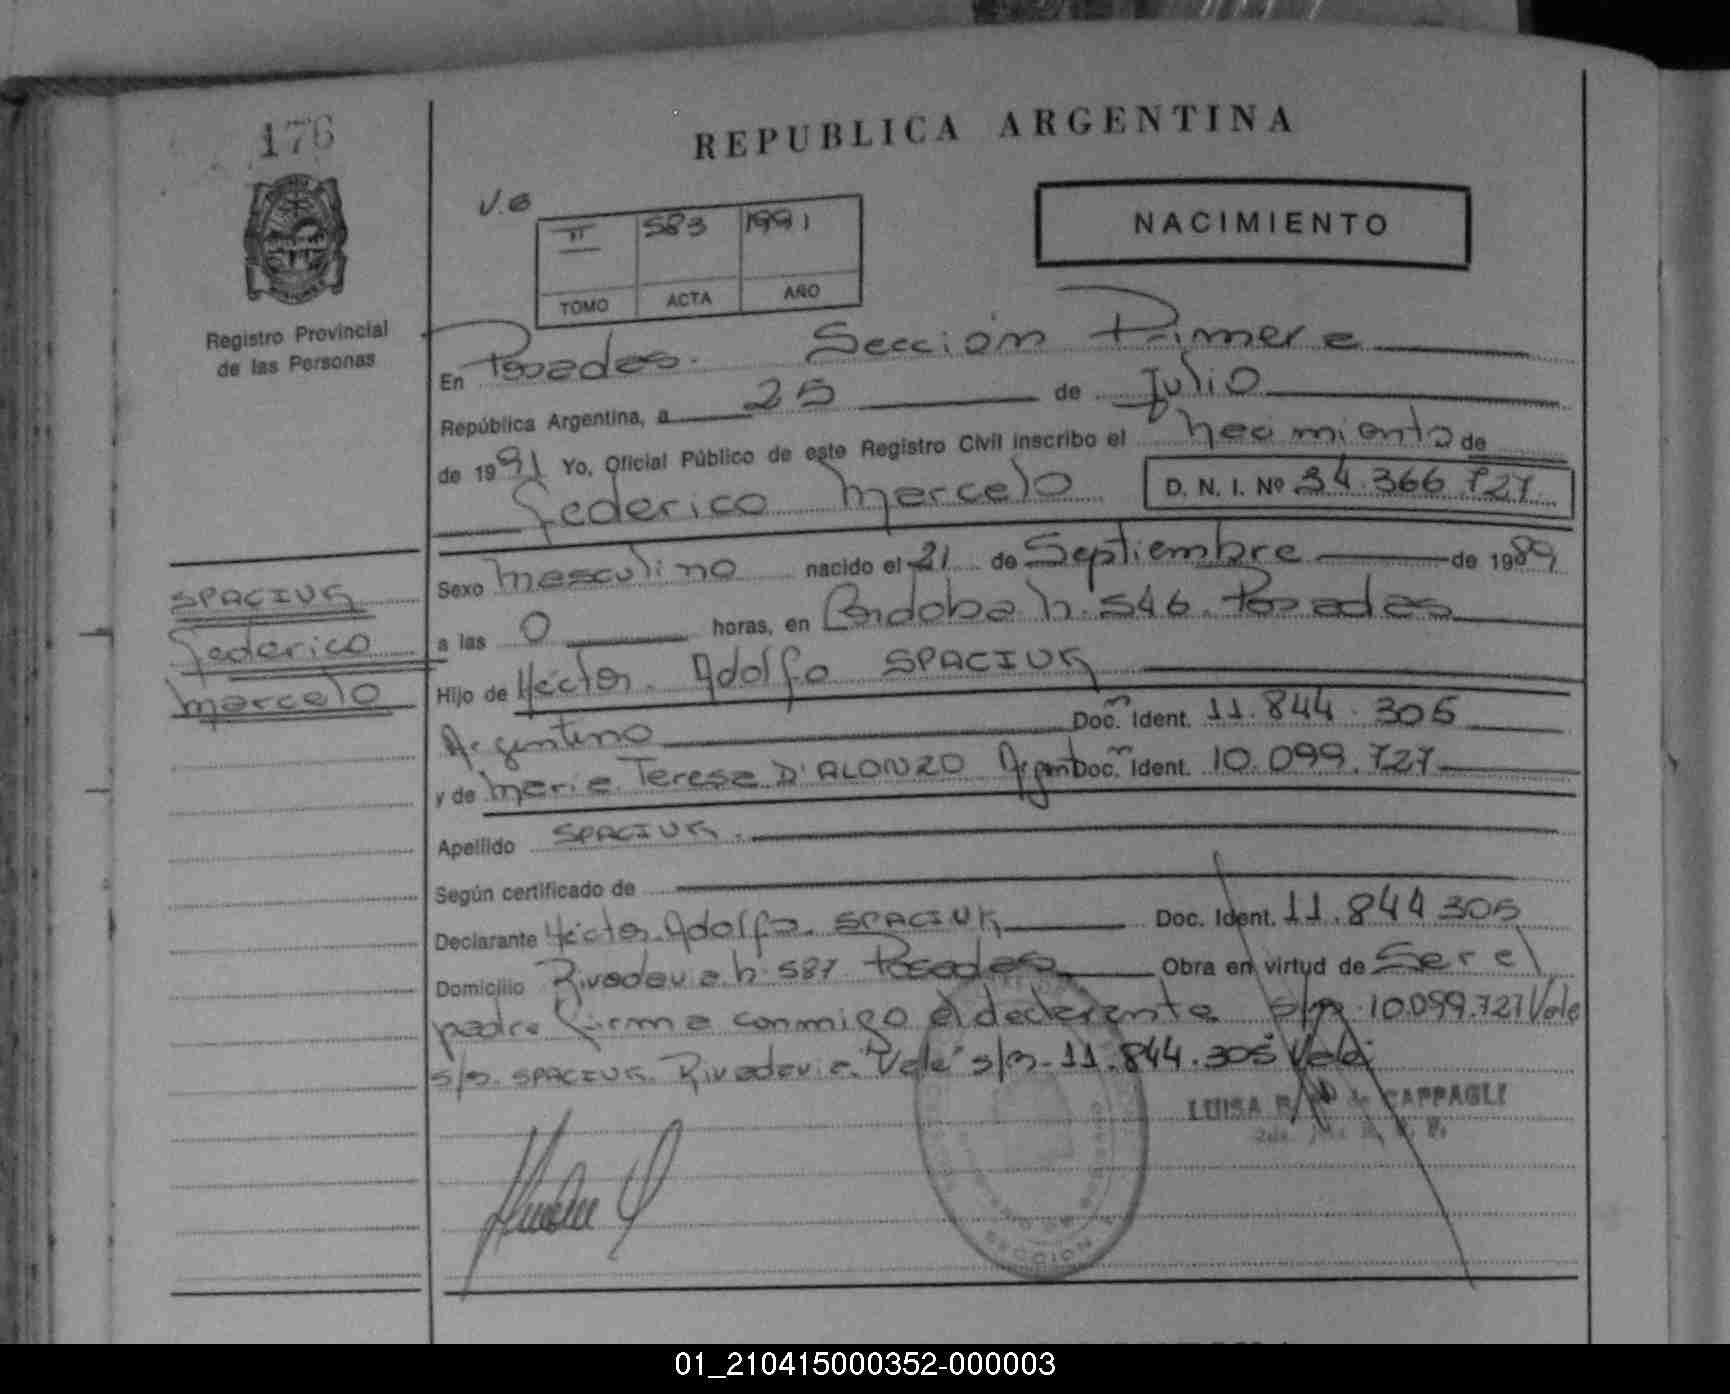 176
REPUBLICA ARGENTINA
V.G
II 583 1991
TOMO ACTA AÑO
NACIMIENTO
Registro Provincial
de las Personas
En Posadas. Sección Primera
República Argentina, a 25 de Julio
de 1991 Yo, Oficial Público de este Registro Civil inscribo el nacimiento de
Federico Marcelo D. N. I. Nº 34.366.727
SPACIUK
Federico
Marcelo
Sexo Masculino nacido el 21 de Septiembre de 1989
a las 0 horas, en Córdoba n. 546. Posadas
Hijo de Héctor Adolfo SPACIUK
Argentino Doc. Ident. 11.844.305
y de Maria Teresa D'ALONZO Argent Doc. Ident. 10.099.727
Apellido SPACIUK.
Según certificado de
Declarante Héctor Adolfo SPACIUK Doc. Ident. 11.844.305
Domicilio Rivadavia n. 587 Posadas Obra en virtud de Ser el
padre firma conmigo el declarante s/r. 10.099.727 Vale
s/r. SPACIUK. Rivadavia. "Vale" s/r. 11.844.305 Vale
LUISA de CAPPAGLI
SECCION
01_210415000352-000003